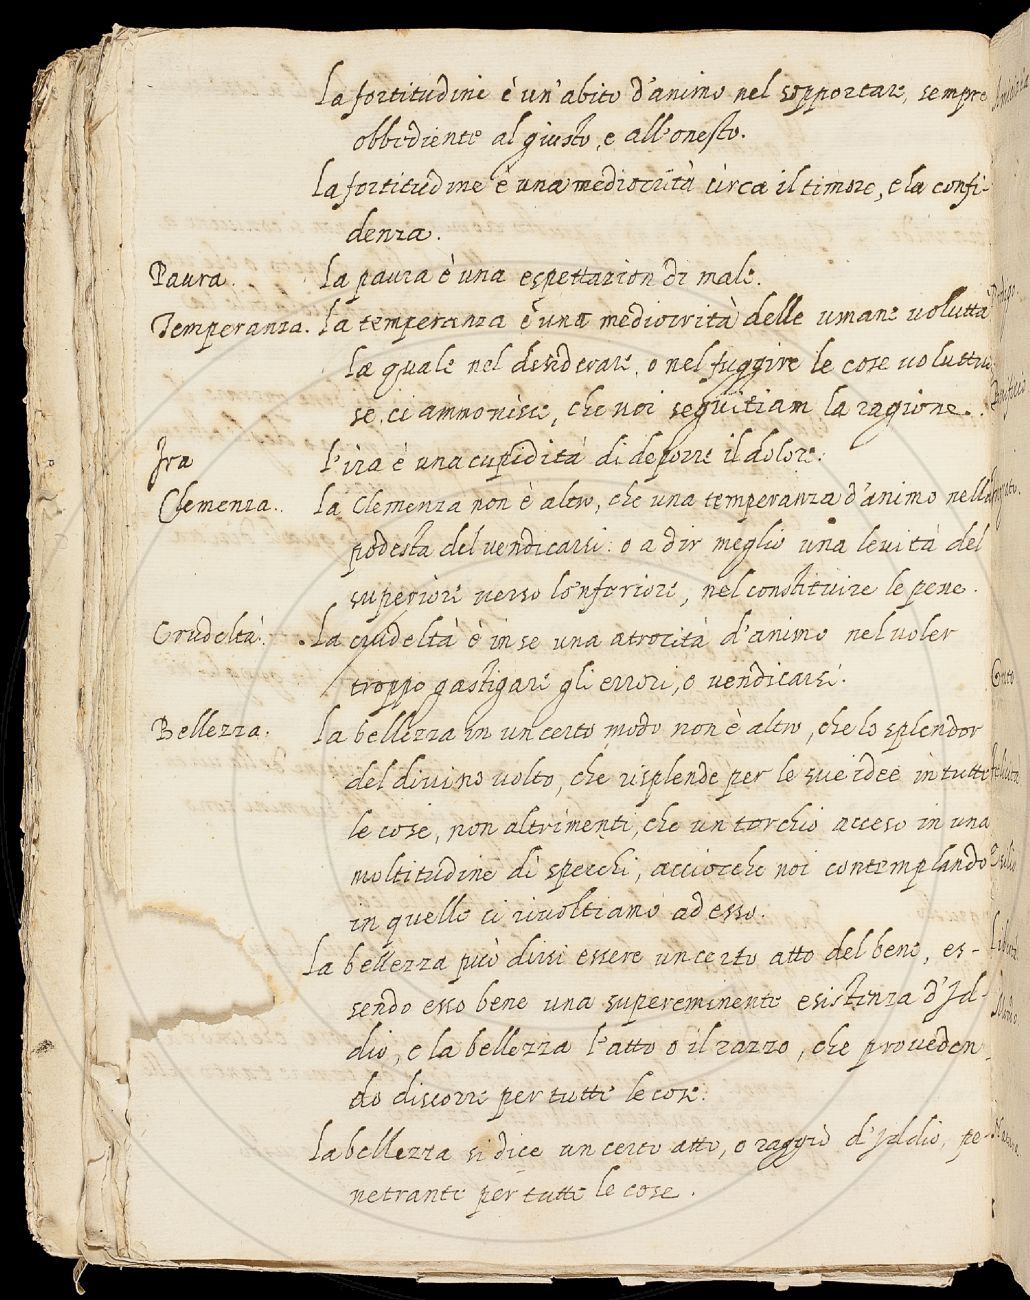 La fortitudine è un'abito d'animo nel sopportare, sempre
obbediente al giusto, e all'onesto.
La fortitudine è una mediocrità circa il timore, e la confi-
denza.
Paura. La paura è una espettazion di male.
Temperanza. La temperanza è una mediocrità delle umane volutta
la quale nel desiderare, o nel fuggire le cose voluttuo
se, ci ammonisce, che noi seguitiam la ragione.
Ira L'ira è una cupidità di deporre il dolore.
Clemenza. La Clemenza non è altro, che una temperanza d'animo nella
podesta del vendicarsi: o a dir meglio una levità del
superiore verso lo'nferiore, nel constituire le pene.
Crudeltà. La crudeltà è in se una atrocità d'animo nel voler
troppo gastigare gli errori, o vendicarsi.
Bellezza. La bellezza in un certo modo non è altro, che lo splendor
del divino volto, che risplende per le sue idee in tutte
le cose, non altrimenti, che un torchio acceso in una
moltitudine di specchi, acciocche noi contemplando
in quelle ci rivoltiamo ad esso.
La bellezza può dirsi essere un certo atto del bene, es-
sendo esso bene una supereminente esistenza d'Id-
dio, e la bellezza l'atto o il razzo, che proveden-
do discorre per tutte le cose.
La bellezza si dice un certo atto, o raggio d'Iddio, pe-
netrante per tutte le cose.